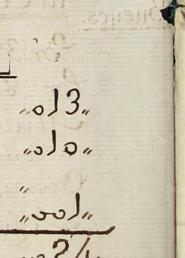 „013„
„010„
„
„001„
„024„